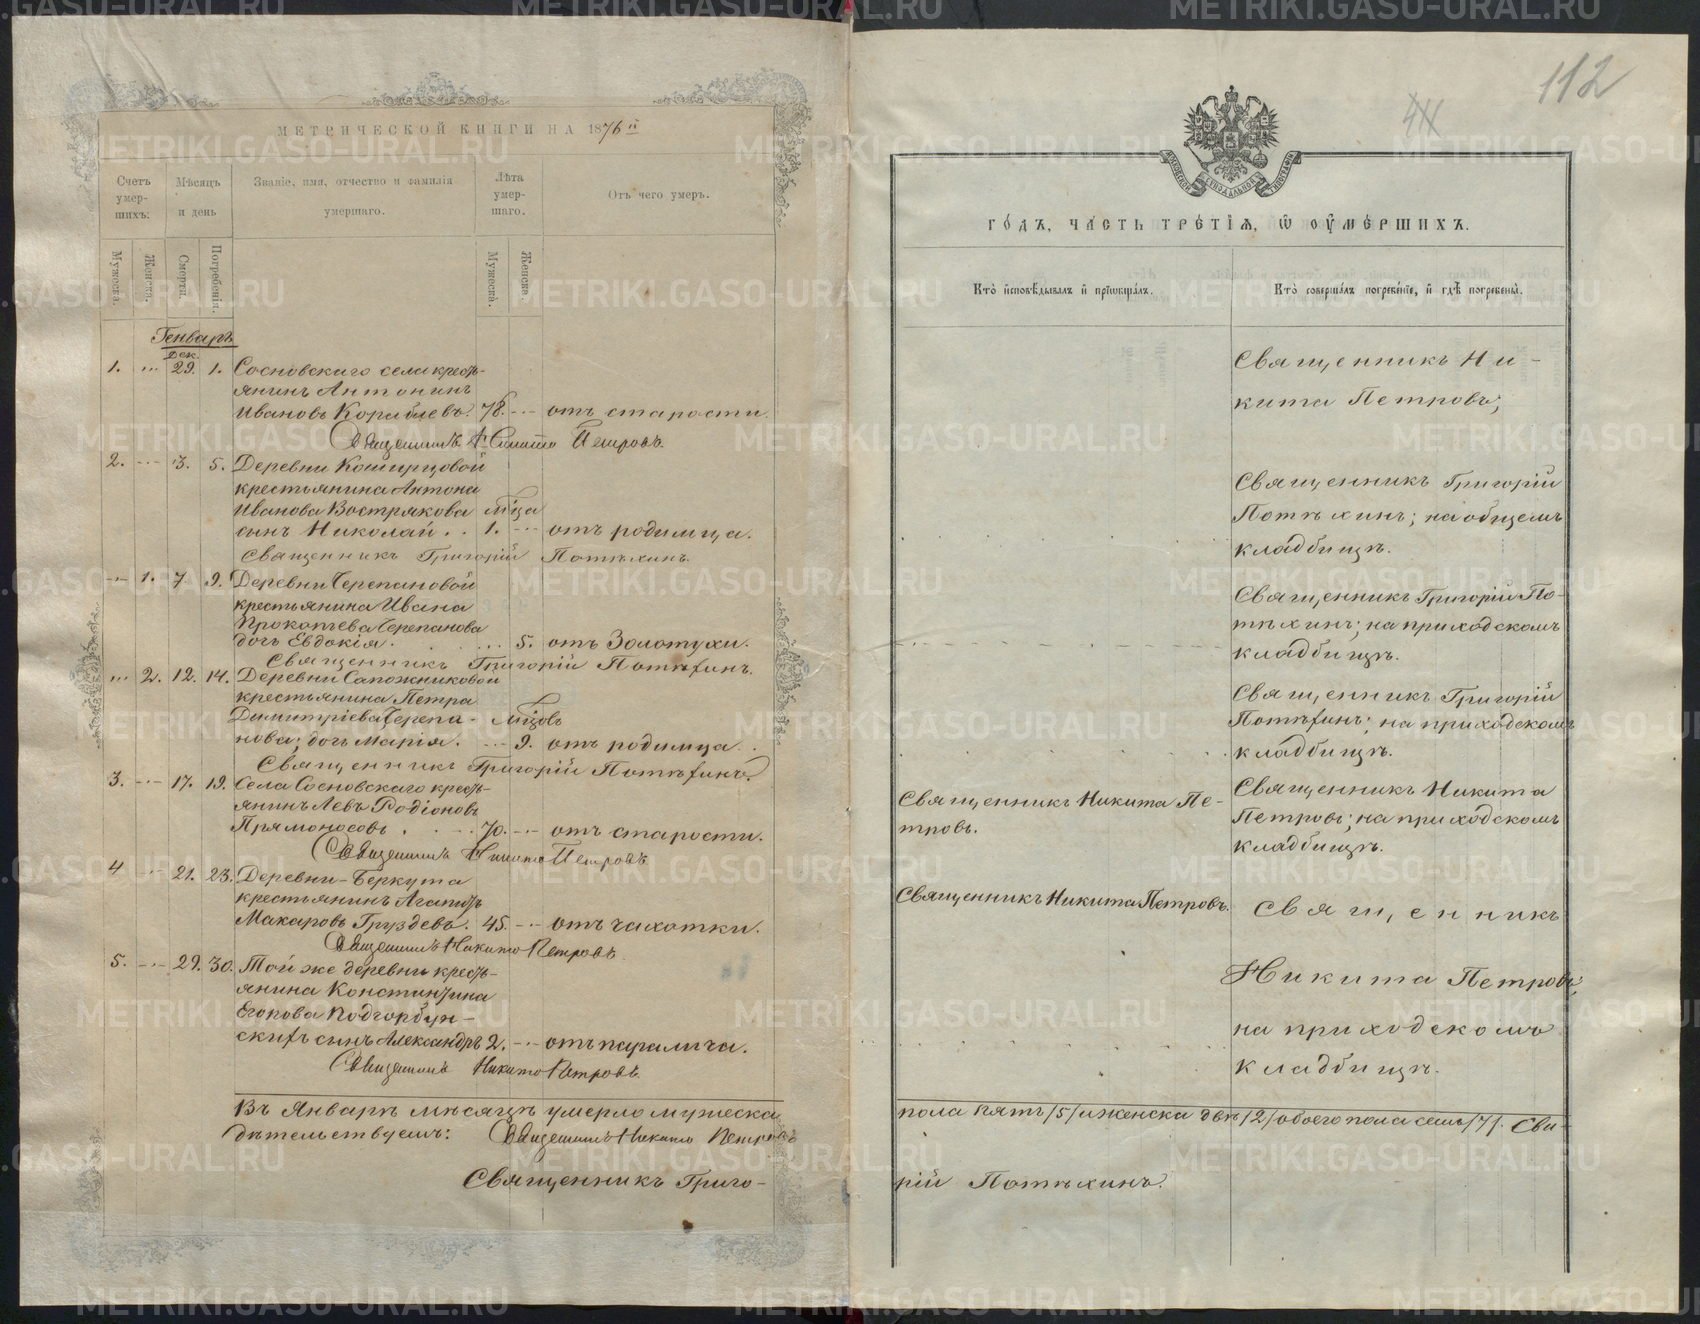 МЕТРИЧЕСКОЙ КНИГИ НА 1876 й
Счетъ умер-шихъ.
Мѣсяцъ и день
Званіе, имя, отчество и фамилія умершаго.
Лѣта умер-шаго.
Отъ чего умеръ.
Мужеска.
Женска.
Смерти.
Погребенія.
Мужеска.
Женска.
Генварь
Дек.
1. 29. 1. Сосновскаго села кресть-
янинъ Антонинъ
Ивановъ Кораблевъ. 78. отъ старости.
Священникъ Никита Петровъ.
2. 3. 5. Деревни Кошурцовой
крестьянина Антона
Иванова Вострякова мѣца
сынъ Николай . . 1. отъ родимца.
Священникъ Григорій Потѣхинъ.
1. 7. 9. Деревни Черепановой
крестьянина Ивана
Прокопьева Черепанова
дочь Евдокія. 5. отъ Золотухи.
Священникъ Григорій Потѣхинъ.
2. 12. 14. Деревни Сапожниковой
крестьянина Петра
Димитріева Черепа-
мѣцовъ
нова; дочь Марія. 9. отъ родимца.
Священникъ Григорій Потѣхинъ.
3. 17. 19. Села Сосновскаго кресть-
янинъ Левъ Родіоновъ
Прямоносовъ . 70. отъ старости.
Священникъ Никита Петровъ
4 21. 23. Деревни Беркута
крестьянинъ Агапитъ
Макаровъ Груздевъ. 45. отъ чахотки.
Священникъ Никита Петровъ
5. 29. 30. Той же деревни кресть-
янина Константина
Егорова Подгорбун-
скихъ сынъ Александръ 2. отъ паралича.
Священникъ Никита Петровъ.
Въ Январѣ мѣсяцѣ умерло мужеска
дѣтельствуемъ: Священникъ Никита Петровъ
Священникъ Григо-
112
44
МОСКОВСКОЙ СѴНОДАЛЬНОЙ ТИПОГРАФІИ
ГО́ДЪ, ЧА́СТЬ ТРЕ́ТІЯ, Ѡ ОУМЕ́РШИХЪ.
Кто̀ и҆сповѣ́дывалъ и҆ прїѡбща́лъ.
Кто̀ соверша́лъ погребе́нїе, и҆ гдѣ̀ погребены̀.
Священникъ Ни-
кита Петровъ;
Священникъ Григорій
Потѣхинъ; на общемъ
кладбищѣ.
Священникъ Григорій По-
тѣхинъ; на приходскомъ
кладбищѣ.
Священникъ Григорій
Потѣхинъ; на приходскомъ
кладбищѣ.
Священникъ Никита Пе-
тровъ.
Священникъ Никита
Петровъ; на приходскомъ
кладбищѣ.
Священникъ Никита Петровъ.
Священникъ
Никита Петровъ;
на приходскомъ
кладбищѣ.
пола пять /5/ и женска двѣ /2/ обоего пола семь /7/. Сви-
рій Потѣхинъ.
METRIKI.GASO-URAL.RU